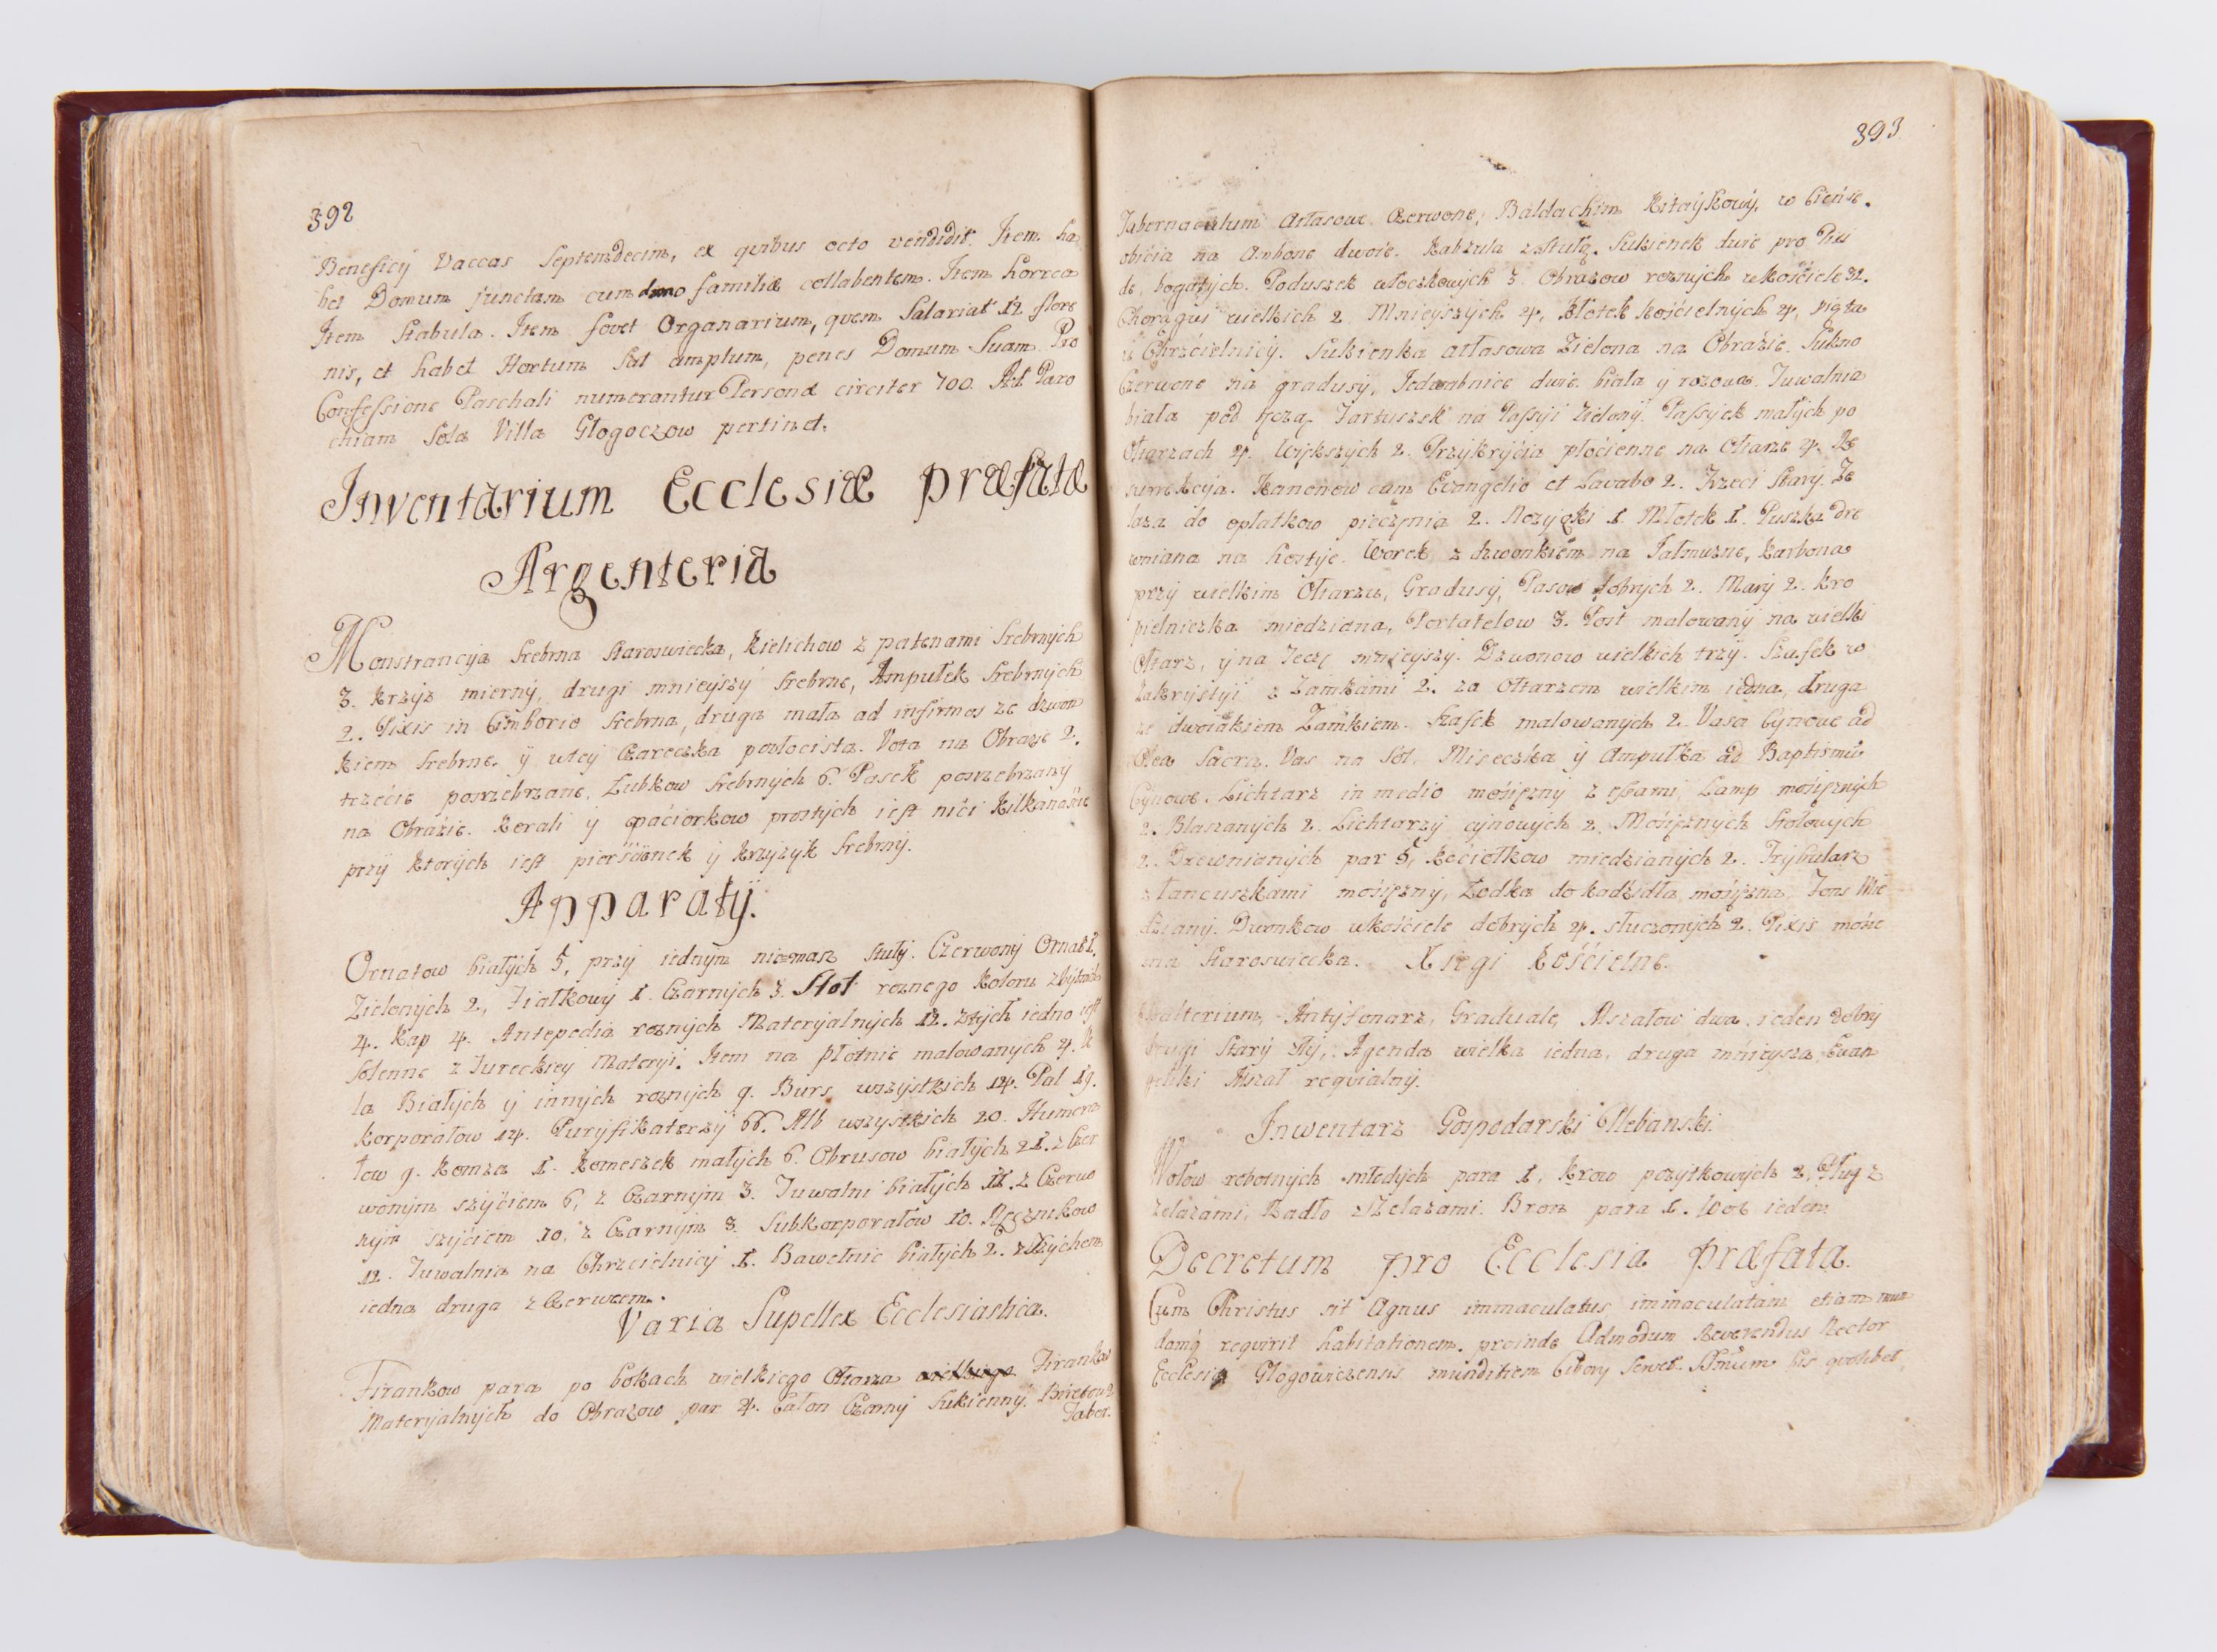 392
Beneficij Vaccas Septemdecim, ex quibus octo vendidit. Item ha
bet Domum junctam cum domo familiæ collabentem. Item horrea
Item Stabula. Item fovet Organarium, quem Salariat 12 flore
nis, et habet Hortum Sat amplum, penes Domum Suam. Pro
Confessione Paschali numerantur Personæ circiter 700. Ad Paro
chiam Sola Villa Głogoczow pertinet.
Inventarium Ecclesiæ præfatæ
Argenteria
Monstrancyja Srebrna Staroswiecka, Kielichow z patenami Srebrnych
3. Krzyz mierny, drugi mnieyszy Srebrne, Ampułek Srebrnych
2. Pixis in Cimborio Srebrna, druga mała ad infirmos ze dzwon
kiem Srebrne. y w tey Czareczka pozłocista. Vota na Obrazie 2.
trzecie posrzebrzane. Ząbkow Srebrnych 6. Pasek posrzebrzany
na Obrazie. Korali y paciorkow prostych iest nici Kilkanascie
przy Ktorych iest piersionek y Krzyzyk Srebrny.
Apparaty.
Ornatow białych 5, przy iednym niemasz Stuły. Czerwony Ornat 1.
Zielonych 2, Fiałkowy 1. Czarnych 3. Stoł roznego Koloru zbytnich
4. Kap 4. Antepedia roznych Materyjalnych 12. z tych iedno iest
Solenne z Tureckiey Materyi. Item na płotnie malowanych 4. We
la Białych y innych roznych 9. Burs wszystkich 14. Pal 19.
Korporałow 14. Puryfikaterzy 66. Alb wszystkich 20. Humera
łow 9. Komza 1. Komeszek małych 6. Obrusow białych 21. z Czer
wonym szyciem 6, z Czarnym 3. Tuwalni białych 11. z Czerwo
nym szyciem 10, z Czarnym 3. Subkorporałow 10. Ręcznikow
12. Tuwalnia na Chrzcielnicy 1. Bawełnic białych 2. z
iedna druga z Czerwcem.
Varia Supellex Ecclesiastica.
Firankow para po bokach wielkiego Ołtarza wielkiego Firankow
Materyjalnych do Obrazow par 4. Całon Czarny Sukienny. Biretow 2
Taber.
393
Tabernaculum Atłasowe Czerwone, Baldachim Kitaykowy, w Cieńie.
obicia na Ambone dwoie. Kabzula z Stułą. Sukienek dwie pro Pixi
de, bogatych. Poduszek włoczkowych 3. Obrazow roznych w Kościele 32.
Chorągwi wielkich 2. Mnieyszych 4, Kłotek kościelnych 4, piąta
u Chrzcielnicy. Sukienka atłasowa Zielona na Obrazie. Sukno
Czerwone na gradusy, Jedwabnice dwie biała y rozowa. Tuwalnia
biała pod Fartuszek na Passyi Zielony. Passyjek małych po
Ołtarzach 4. Większych 2. Przykrycia płocienne na Ołtarze 4. Re
surrekcyja. Kanonow cum Evangelio et Lavabo 2. Trzeci Stary. Że
laza do opłatkow pieczynia 2. Nozyczki 1. Młotek 1. Puszka dre
wniana na hostye. Worek z dzwonkiem na Jałmuzne, Karbona
przy wielkim Ołtarzu, Gradusy, Pasow dobrych 2. Mary 2. Kro
pielniczka miedziana, Portatelow 3. Post malowany na wielki
Ołtarz, y na mnieyszy. Dzwonow wielkich trzy. Szafek w
Zakrystyi z Zamkami 2. za Ołtarzem wielkim iedna, druga
ze dwoiakiem Zamkiem. Szafek malowanych 2. Vasa Cynowe ad
Olea Sacra. Vas na Sol, Miseczka y Ampułka ad Baptismũ
Cynowe. Lichtarz in medio mosiężny z esami, Lamp mosiężnych
2. Blaszanych 2. Lichtarzy cynowych 2. Mosiężnych Stołowych
2. Drewnianych par 5, Kociełkow miedzianych 2. Trybularz
z łancuszkami mosiężny, Łodka do kadzidła mosiężna. Fons Mie
dziany. Dzwonkow w kościele dobrych 4. słuczonych 2. Pixis mosie
zna Staroswiecka. Xięgi Kościelne.
Psalterium, Antyfonarz, Graduale, Mszałow dwa, ieden dobry
drugi Stary Zły, Agenda wielka iedna, druga mnieysza, Evan
geliki Mszał requialny.
Inwentarz Gospodarski Plebanski.
Wołow robotnych młodych para 1. Krow pozytkowych 2, Pług z
Zelazami, Radło z Zelazami. Bron para 1. Woz ieden.
Decretum pro Ecclesia præfata.
Cum Christus sit Agnus immaculatus, immaculatam etiam mun
damq̃ requirit habitationem. proinde Admodum Reverendus Rector
Ecclesiæ Głogowiczensis munditiem Cibory Servet. SSmum bis quolibet